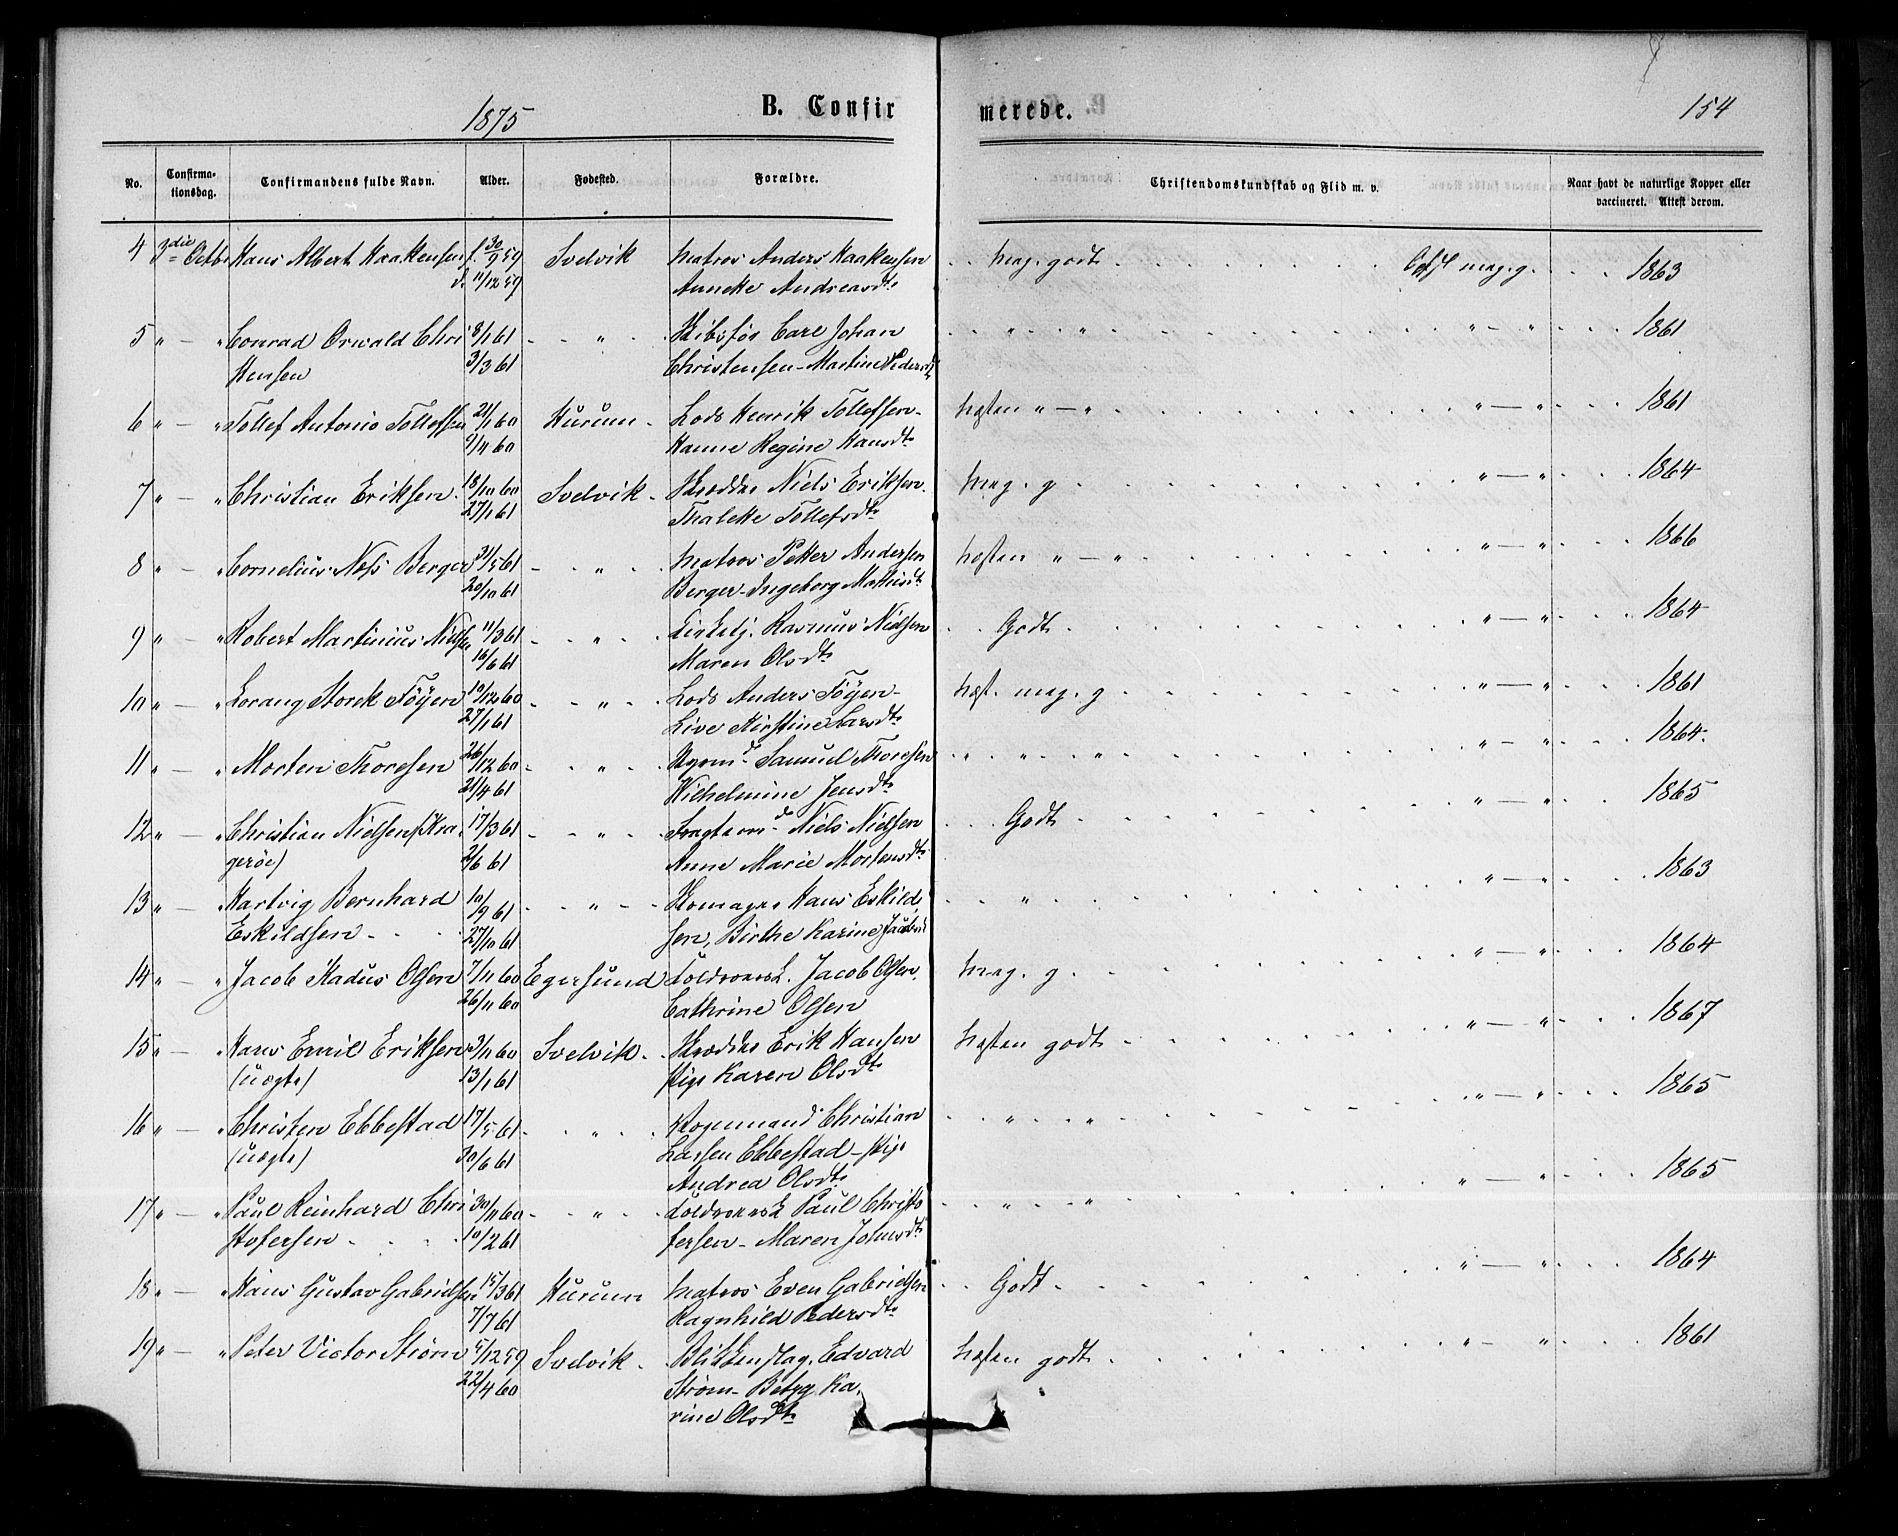 1875 B. Confirmerede. 154
No. Confirmationsdag. Confirmandens fulde Navn. Alder. Fødested. Forældre. Christendomskundskab og Flid m. v. Naar havt de naturlige Kopper eller vaccineret. Attest derom.
4 3die Octbr Hans Albert Haakensen f. 30/9 59 Svelvik Matros Anders Haakensen meg. godt meg. g. 1863
d. 11/12 59 Anneke Andreasdtr
5 " — " Conrad Orwald Chri 8/1 61 " Skibsfør Carl Johan " " " — " 1861
stensen 3/3 61 Christensen - Martine Pedersdtr
6 " — " Tollef Antonio Tollefsen 21/1 60 Hurum Lods Henrik Tollefsen næsten " — " " — " 1861
9/4 60 Hanne Regine Hansdtr
7 " — " Christian Eriksen 18/10 60 Svelvik Skrædder Niels Eriksen meg. g " — " 1864
27/1 61 Thaleke Tollefsdtr
8 " — " Cornelius Næss Berger 31/5 61 " Matros Petter Andersen næsten " — " " — " 1866
20/10 61 Berger - Ingeborg Mathisdtr
9 " — " Robert Martinius Nielsen 11/3 61 " Rasmus Nielsen Godt " — " 1864
16/6 61 Maren Olsdtr
10 " — " Lorang Storck Föÿen 10/12 60 " Lods Anders Föÿen - næst. meg. g " — " 1861
27/1 61 Live Kirstine Larsdtr
11 " — " Morten Thoresen 26/12 60 " Samuel Thoresen " " " " — " 1864.
21/4 61 Wilhelmine Jensdtr
12 " — " Christian Nielsen (Kra 17/3 61 " Niels Nielsen Godt " — " 1865
gerøe) 2/6 61 Anne Marie Mortensdtr
13 " — " Hartvig Bernhard 10/9 61 " Skomager Hans Eskild " " — " 1863
Eskildsen 27/10 61 sen, Birthe Karine Jacobsd
14 " — " Jacob Kadus Olsen 7/11 60 Egersund Toldroersk. Jacob Olsen meg. g " — " 1864
26/11 60 Cathrine Olsen
15 " — " Hans Emil Eriksen 3/11 60 Svelvik Skrædder Erik Hansen næsten godt " — " 1867
(uægte) 13/1 61 Pige Karen Olsdtr
16 " — " Christen Ebbestad 17/5 61 " Christian " " " — " 1865
(uægte) 30/6 61 Larsen Ebbestad - Pige
Andrea Olsdtr
17 " — " Paul Reinhard Chri 30/11 60 " Toldroersk Paul Christo " " " — " 1865
stofersen 10/2 61 fersen - Maren Johnsdtr
18 " — " Hans Gustav Gabrielsen 15/3 61 Hurum Matros Even Gabrielsen Godt " — " 1864
7/7 61 Ragnhild Pedersdtr
19 " — " Peter Victor Ström 5/12 59 Svelvik Blikkenslag. Edvard næsten godt " — " 1861
22/4 60 Strøm - Betzy Ka
rine Olsdtr